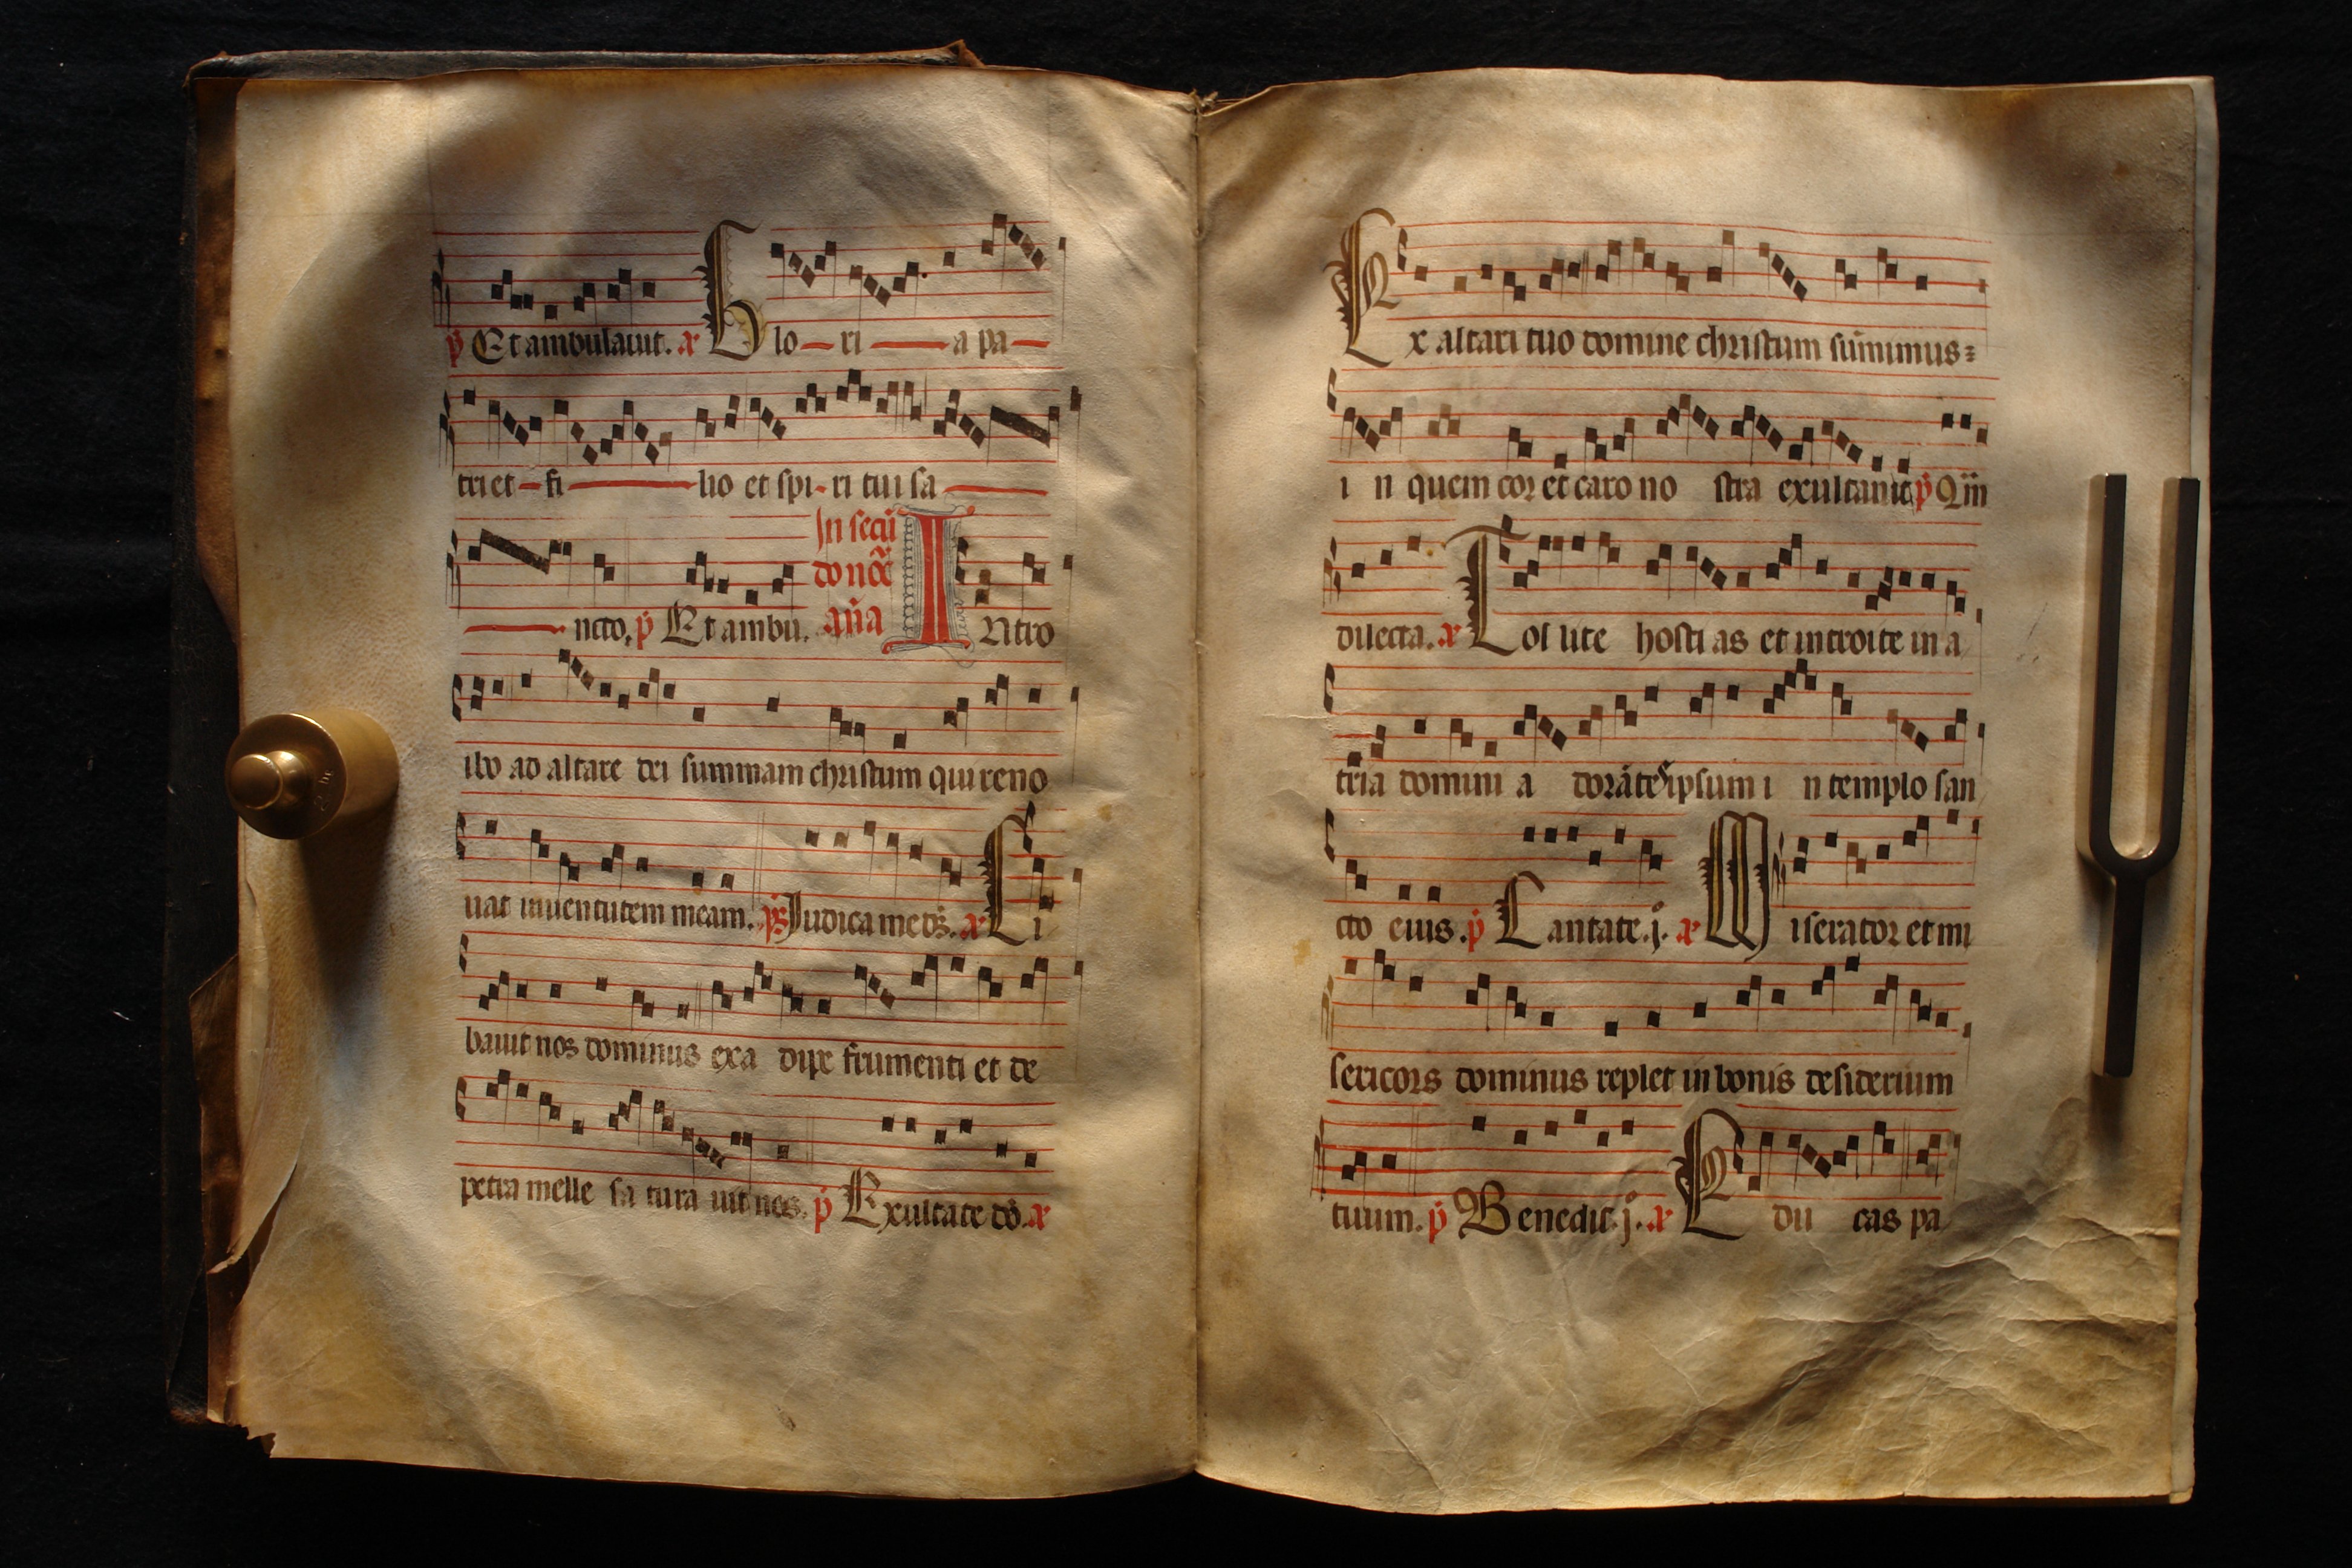 p̄ Et ambulauit. a Glo ri a pa
tri et fi lio et spi ri tui sa
In secū
ncto, p̄ Et ambu. do noc̄ an̄a I Ntro
ibo ad altare dei summam christum qui reno
uat iuuentutem meam. ps Iudica me ds̄. a Ci
bauit nos dominus exa dipe frumenti et de
petra melle sa tura uit nos. p̄ Exultate dō. a
Ex altari tuo domine christum sūmimus
i n quem cor et caro no stra exultant p̄ Qm̄
dilecta. a Tol lite hosti as et introite in a
tria domini a dorāte ipsum i n templo san
cto eius. p̄ Cantate .j. a Miserator et mi
sericors dominus replet in bonis desiderium
tuum. p̄ Benedic .j. a E du cas pa